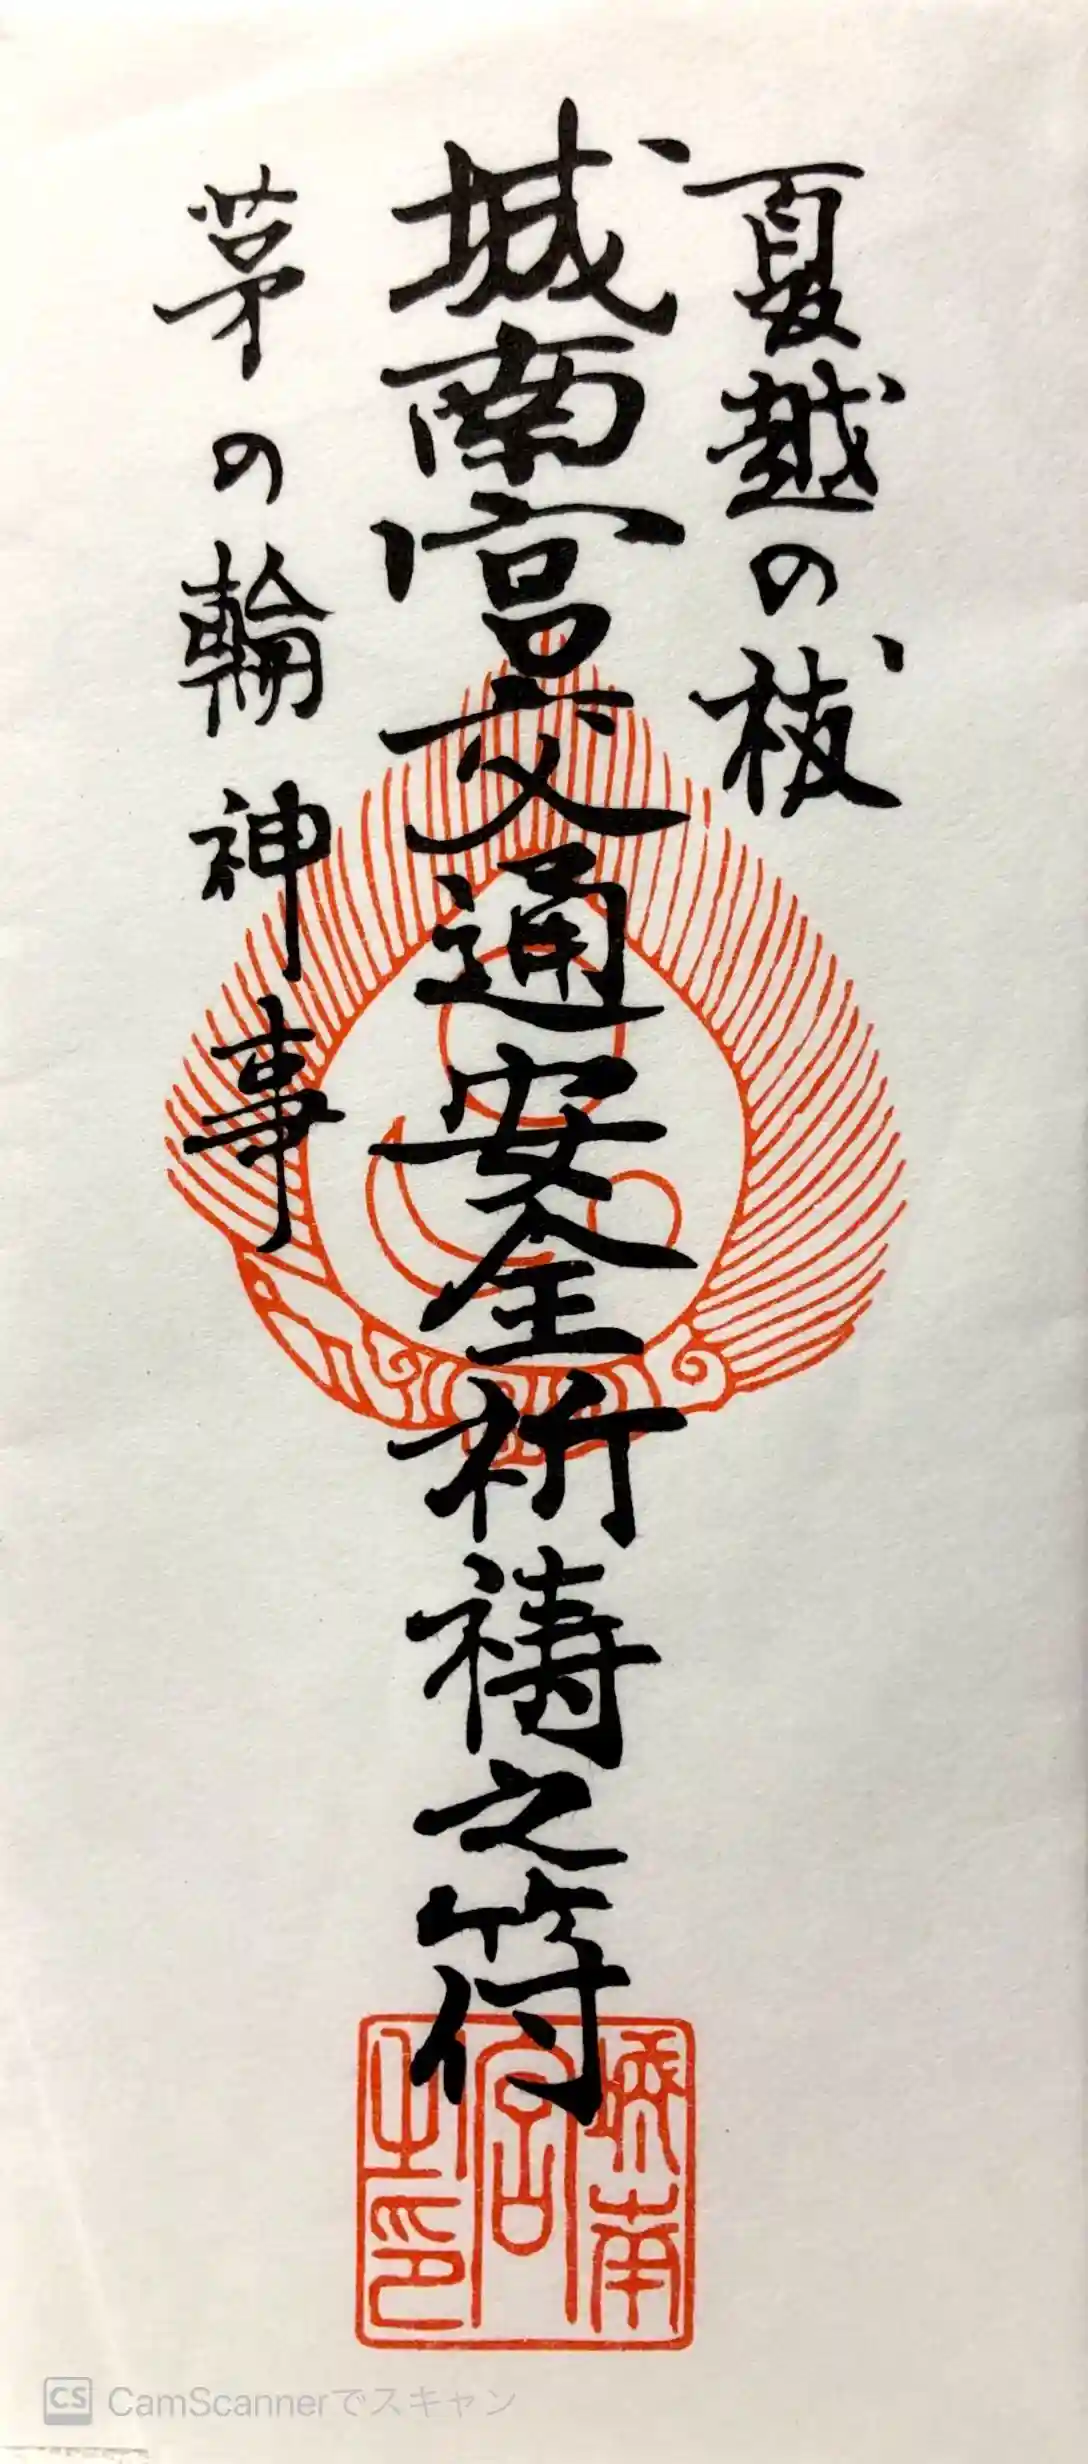 夏越の祓
城南宮交通安全祈祷之符
茅の輪神事
城南
宮
之印
CS CamScannerでスキャン